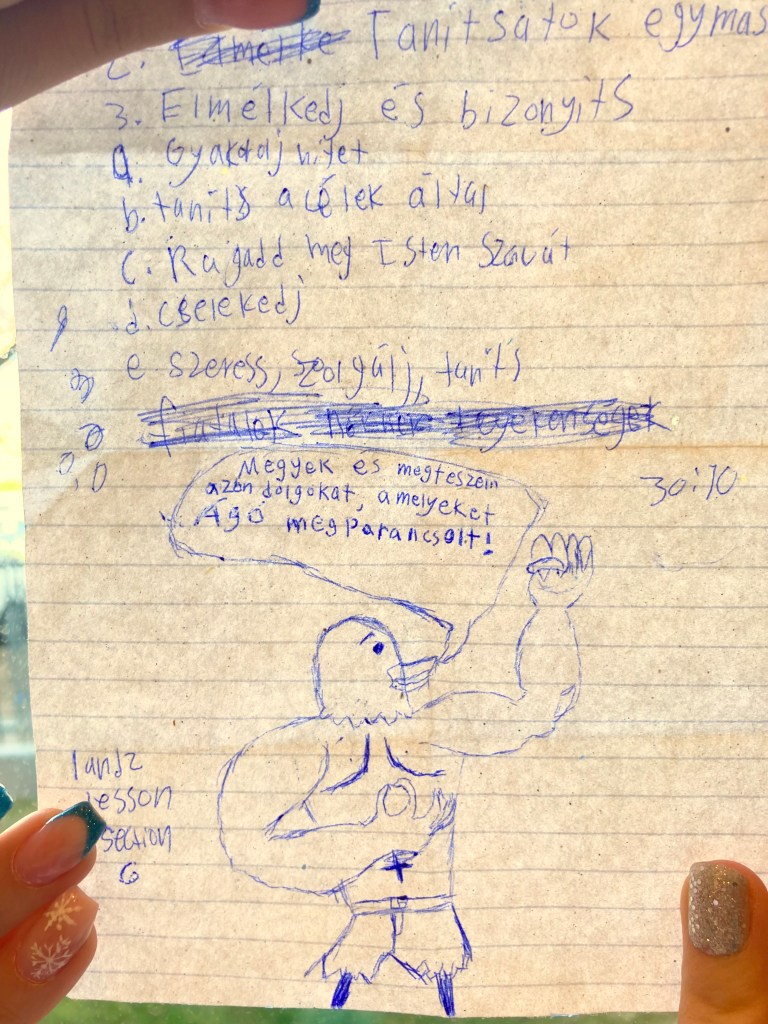 2. Tanítsatok egymás
3. Elmélkedj és bizonyíts
a. Gyakorolj hitet
b. taníts a célek által
c. Ragadd meg Isten szavát
d. cselekedj
e szeress, szolgálj, taníts
30:10
Megyek és megteszem
azon dolgokat, amelyeket
Ágó megparancsolt!
1 and 2
lesson
section
6